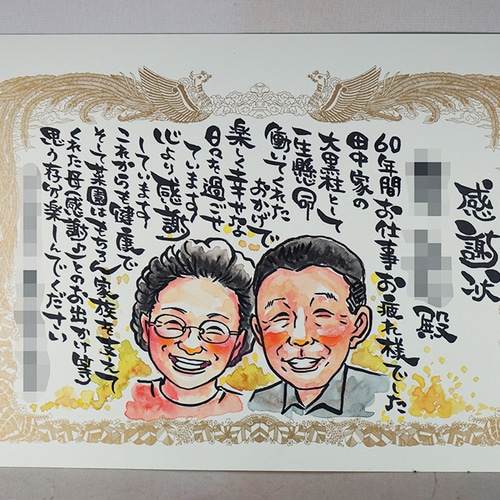 感謝状
殿
60年間お仕事お疲れ様でした
田中家の
大黒柱として
一生懸命
働いてくれた
おかげで
楽しく幸せな
日々を過ごせ
ています
心より感謝
しています
これからも健康で
そして菜園はもちろん家族を支えて
くれた母(感謝)とのお出かけ等
思う存分楽しんでください